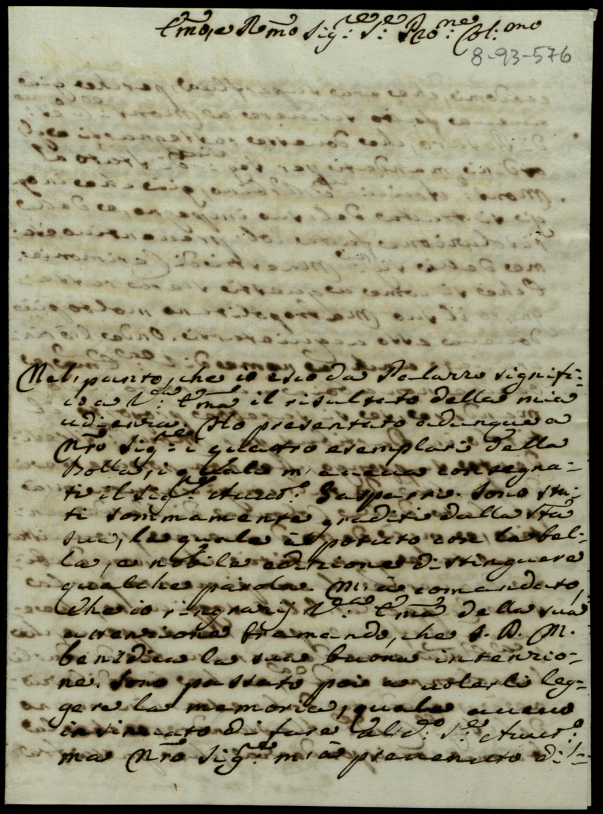 Emo, e Rmo Sig.re S.r P̃ro.ne Col.mo
8-93-576
Nel punto, che io esco da Palazzo signifi-
co a V.ra Em̃a il risultato della mia
udienza. Ho presentato adunque a
Nr̃o Sig.re i quattro esemplari della
Bolla, i quali m'aveva consegna-
ti il Sig.r Avvoc.o Gasparri. Sono sta-
ti sommamente graditi dalla Stà
sua, la quale à potuto con la bel-
la, e nobile edizione distinguere
qualche parola. M'à comandato,
che io ringrazj V.ra Em̃a della sua
attenzione bramando, che S. D. M.
benedica la sua buona intenzio-
ne. Sono passato poi a volerli leg-
gere la memoria, quale avevo
insinuato di fare al d.o S.r Avvoc.o
ma Nr̃o Sig.re m'à prevenuto di-